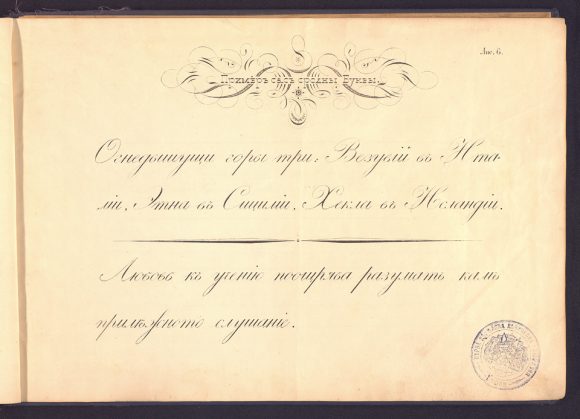 Лис. 6.
Примѣръ съсъ срѣдны Буквы.
Огнедышущи горы три: Везувій въ Ита-
ліи, Этна въ Сициліи, Хекла въ Исландіи.
Любовь къ ученію поощрява разумать камъ
прилѣжното слушаніе.